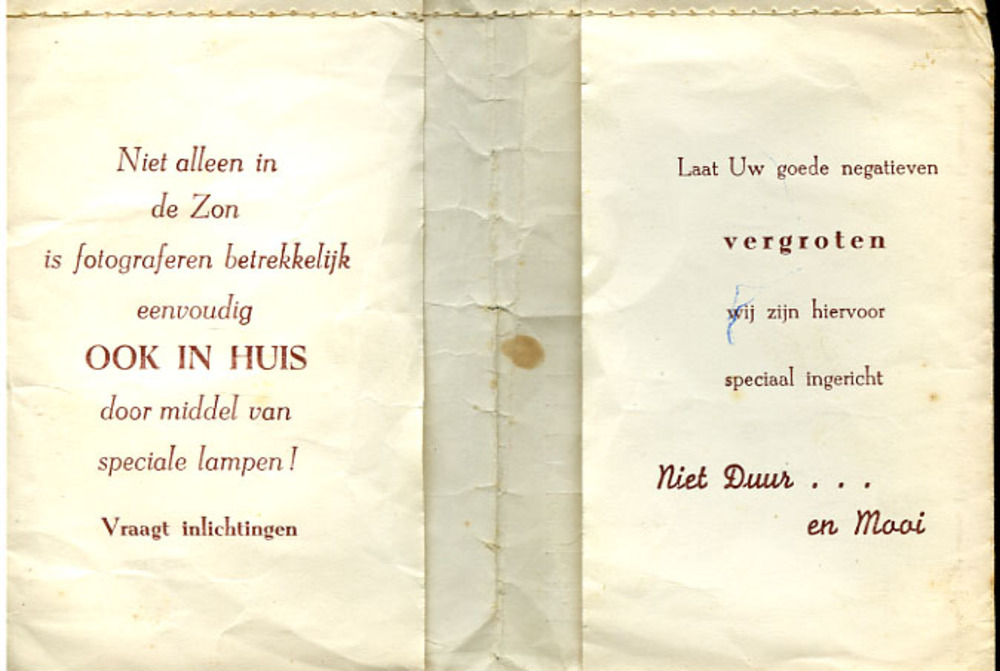 Niet alleen in
de Zon
is fotograferen betrekkelijk
eenvoudig
OOK IN HUIS
door middel van
speciale lampen!
Vraagt inlichtingen
Laat Uw goede negatieven
vergroten
wij zijn hiervoor
speciaal ingericht
Niet Duur . . .
en Mooi